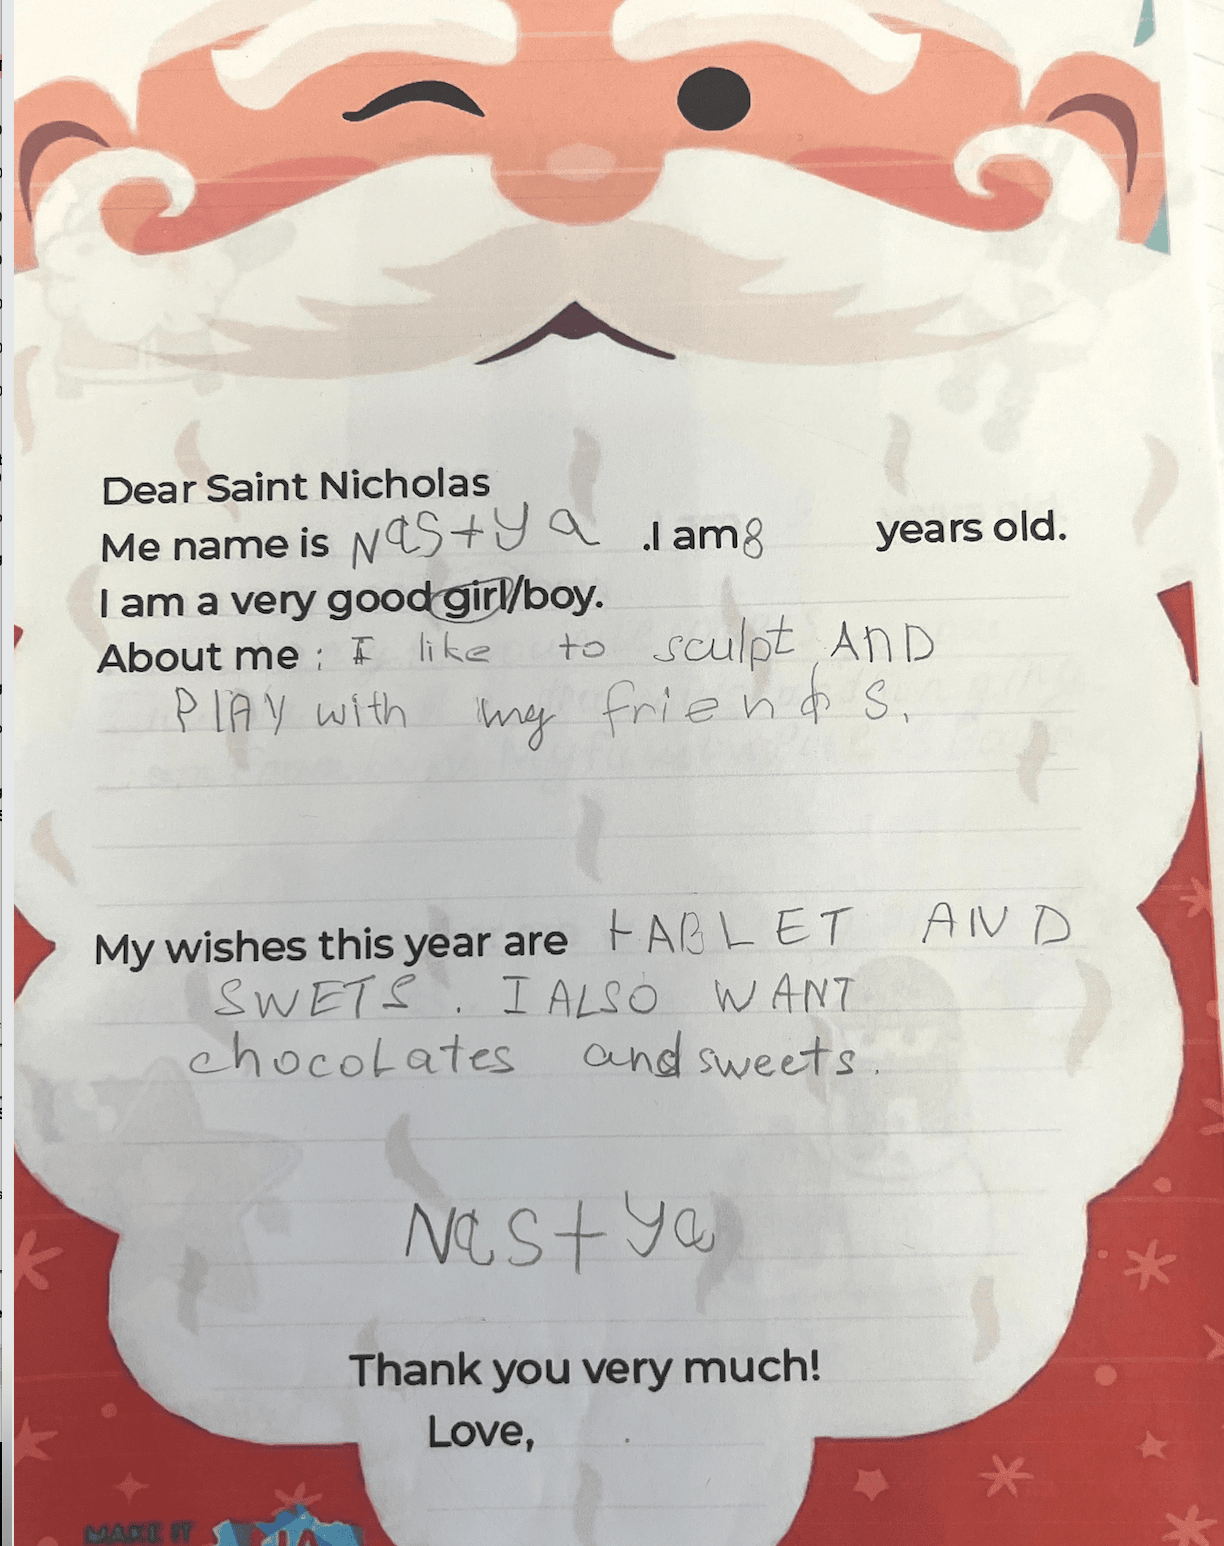 Dear Saint Nicholas
Me name is Nastya .I am 8 years old.
I am a very good girl/boy.
About me : I like to sculpt, AND
PlAY with my friends.
My wishes this year are tABLET AND
SWETS. I ALSO WANT
chocoLates and sweets.
Nastya
Thank you very much!
Love,
MAKE IT